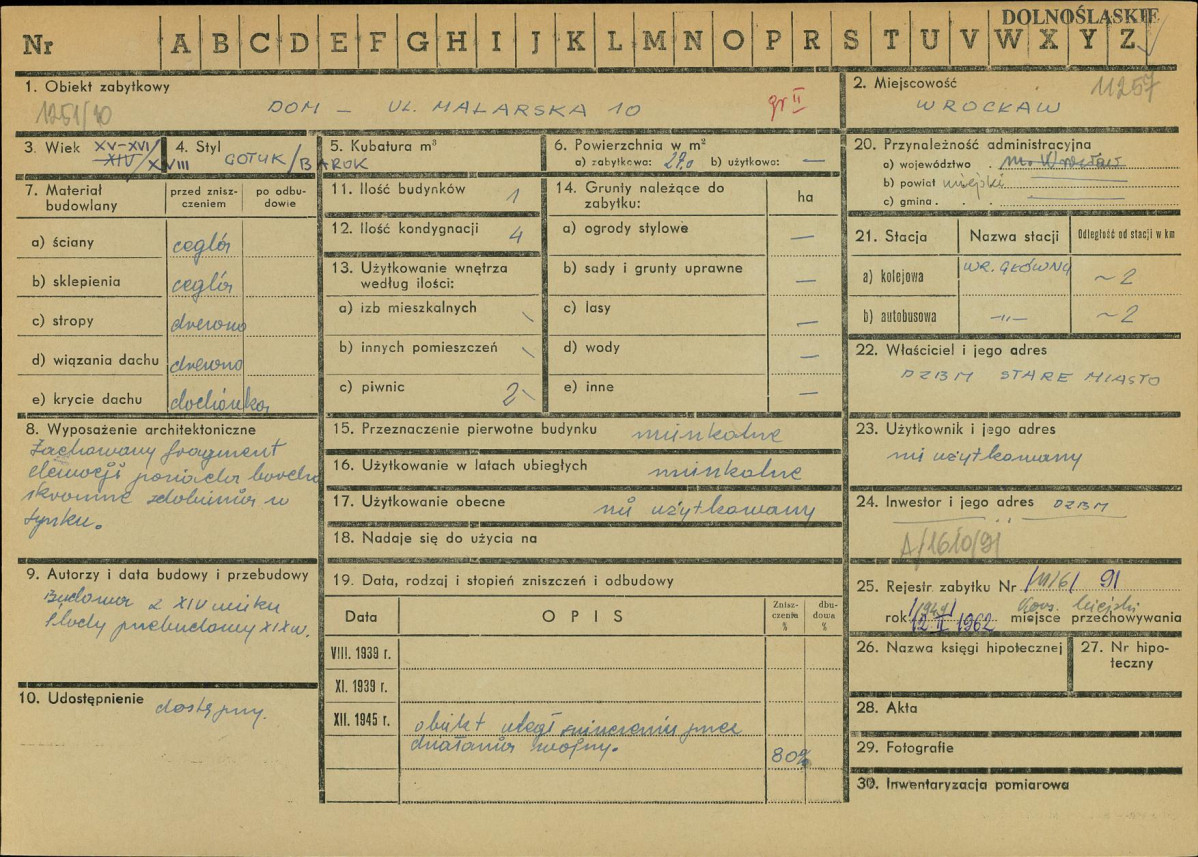 DOLNOŚLĄSKIE
Nr A B C D E F G H I J K L M N O P R S T U V W X Y Z
1. Obiekt zabytkowy
DOM – UL. MALARSKA 10
gr II
2. Miejscowość
11257
WROCŁAW
3. Wiek XV–XVI/
XIV/XVIII
4. Styl GOTYK/BAROK
5. Kubatura m³
6. Powierzchnia w m²
a) zabytkowa: b) użytkowa: —
7. Materiał budowlany
przed zniszczeniem
po odbudowie
a) ściany cegła
b) sklepienia cegła
c) stropy drewno
d) wiązania dachu drewno
e) krycie dachu dachówka
8. Wyposażenie architektoniczne
Zachowany fragment
elewacji
skromne zdobienia w
tynku.
9. Autorzy i data budowy i przebudowy
Budowa z XIV wieku
Ślady przebudowy XIX w.
10. Udostępnienie dostępny.
11. Ilość budynków 1
12. Ilość kondygnacji 4
13. Użytkowanie wnętrza
według ilości:
a) izb mieszkalnych \
b) innych pomieszczeń \
c) piwnic 2
14. Grunty należące do
zabytku:
ha
a) ogrody stylowe —
b) sady i grunty uprawne —
c) lasy —
d) wody —
e) inne —
15. Przeznaczenie pierwotne budynku mieszkalne
16. Użytkowanie w latach ubiegłych mieszkalne
17. Użytkowanie obecne nie użytkowany
18. Nadaje się do użycia na
19. Data, rodzaj i stopień zniszczeń i odbudowy
Data
OPIS
Zniszczenia %
dbudowa %
VIII. 1939 r.
XI. 1939 r.
XII. 1945 r. obiekt uległ zniszczeniu przez
działania wojny. 80%
20. Przynależność administracyjna
a) województwo . m. Wrocław
b) powiat miejski
c) gmina . . .
21. Stacja
Nazwa stacji
Odległość od stacji w km
a) kolejowa WR. GŁÓWNY ~2
b) autobusowa —"— ~2
22. Właściciel i jego adres
DZBM STARE MIASTO
23. Użytkownik i jego adres
nie użytkowany
24. Inwestor i jego adres DZBM
A/1610/91
25. Rejestr zabytku Nr 91
rok 12 II 1962 miejsce przechowywania
Kons. Miejski
26. Nazwa księgi hipotecznej
27. Nr hipoteczny
28. Akta
29. Fotografie
30. Inwentaryzacja pomiarowa